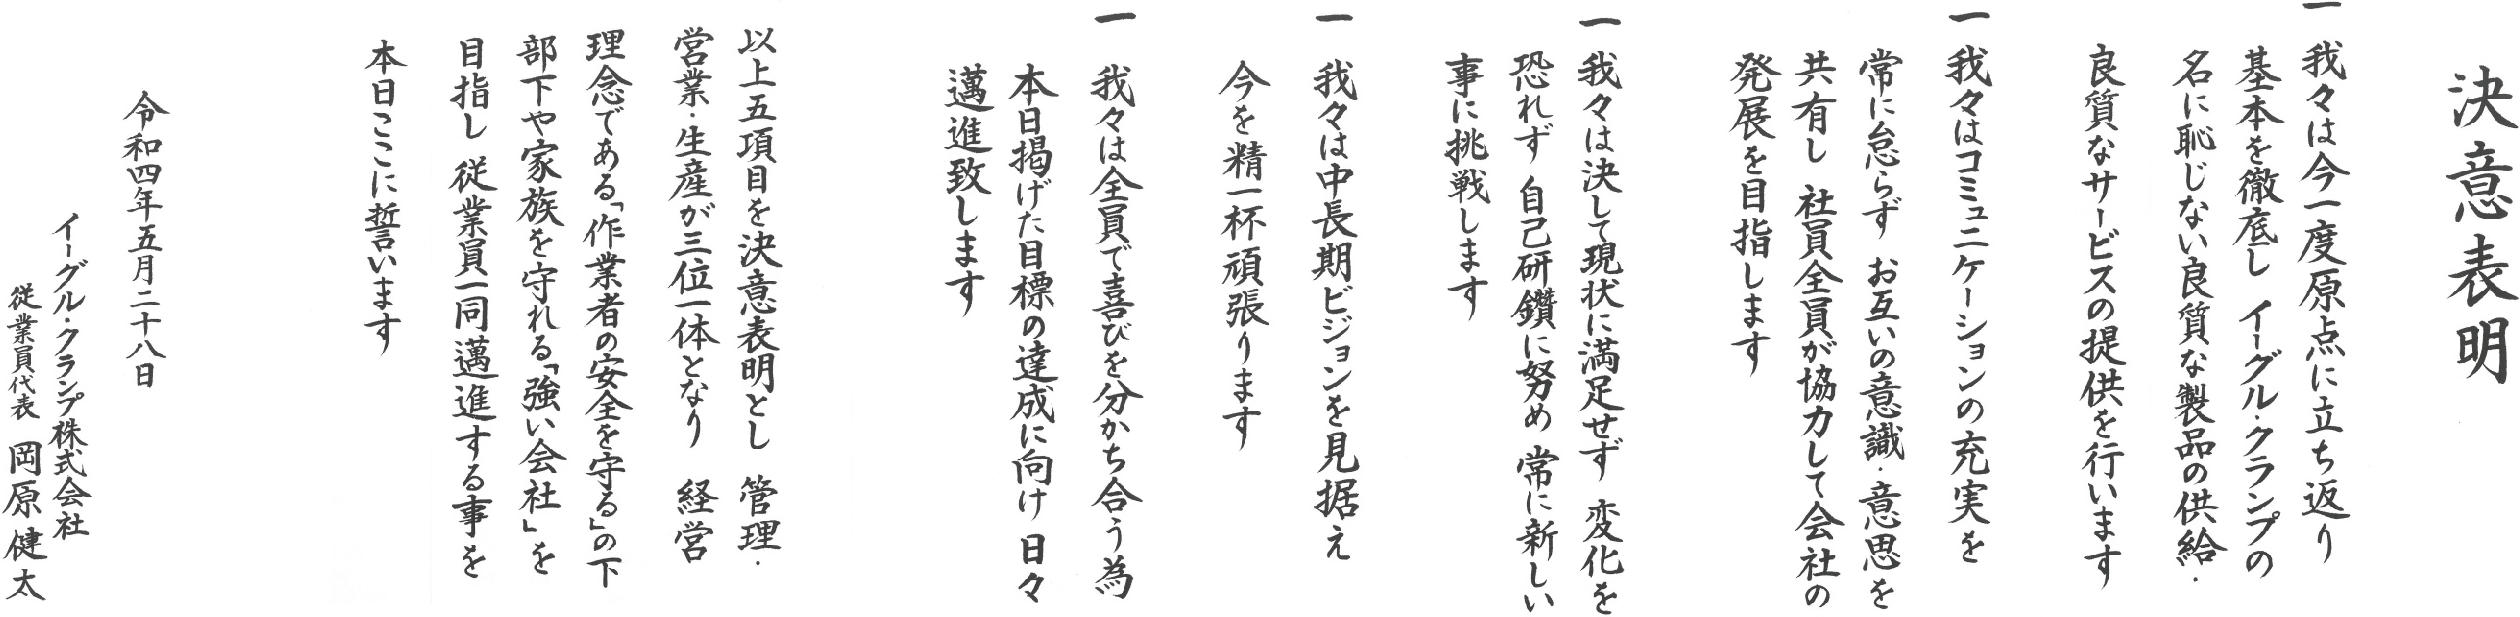 決意表明
一 我々は今一度原点に立ち返り
基本を徹底し イーグル・クランプの
名に恥じない良質な製品の供給・
良質なサービスの提供を行います
一 我々はコミュニケーションの充実を
常に怠らず お互いの意識・意思を
共有し 社員全員が協力して会社の
発展を目指します
一 我々は決して現状に満足せず 変化を
恐れず 自己研鑽に努め 常に新しい
事に挑戦します
一 我々は中長期ビジョンを見据え
今を精一杯頑張ります
一 我々は全員で喜びを分かち合う為
本日掲げた目標の達成に向け 日々
邁進致します
以上五項目を決意表明とし 管理・
営業・生産が三位一体となり 経営
理念である「作業者の安全を守る」の下
部下や家族を守れる「強い会社」を
目指し 従業員一同邁進する事を
本日ここに誓います
令和四年五月二十八日
イーグル・クランプ株式会社
従業員代表 岡原健太